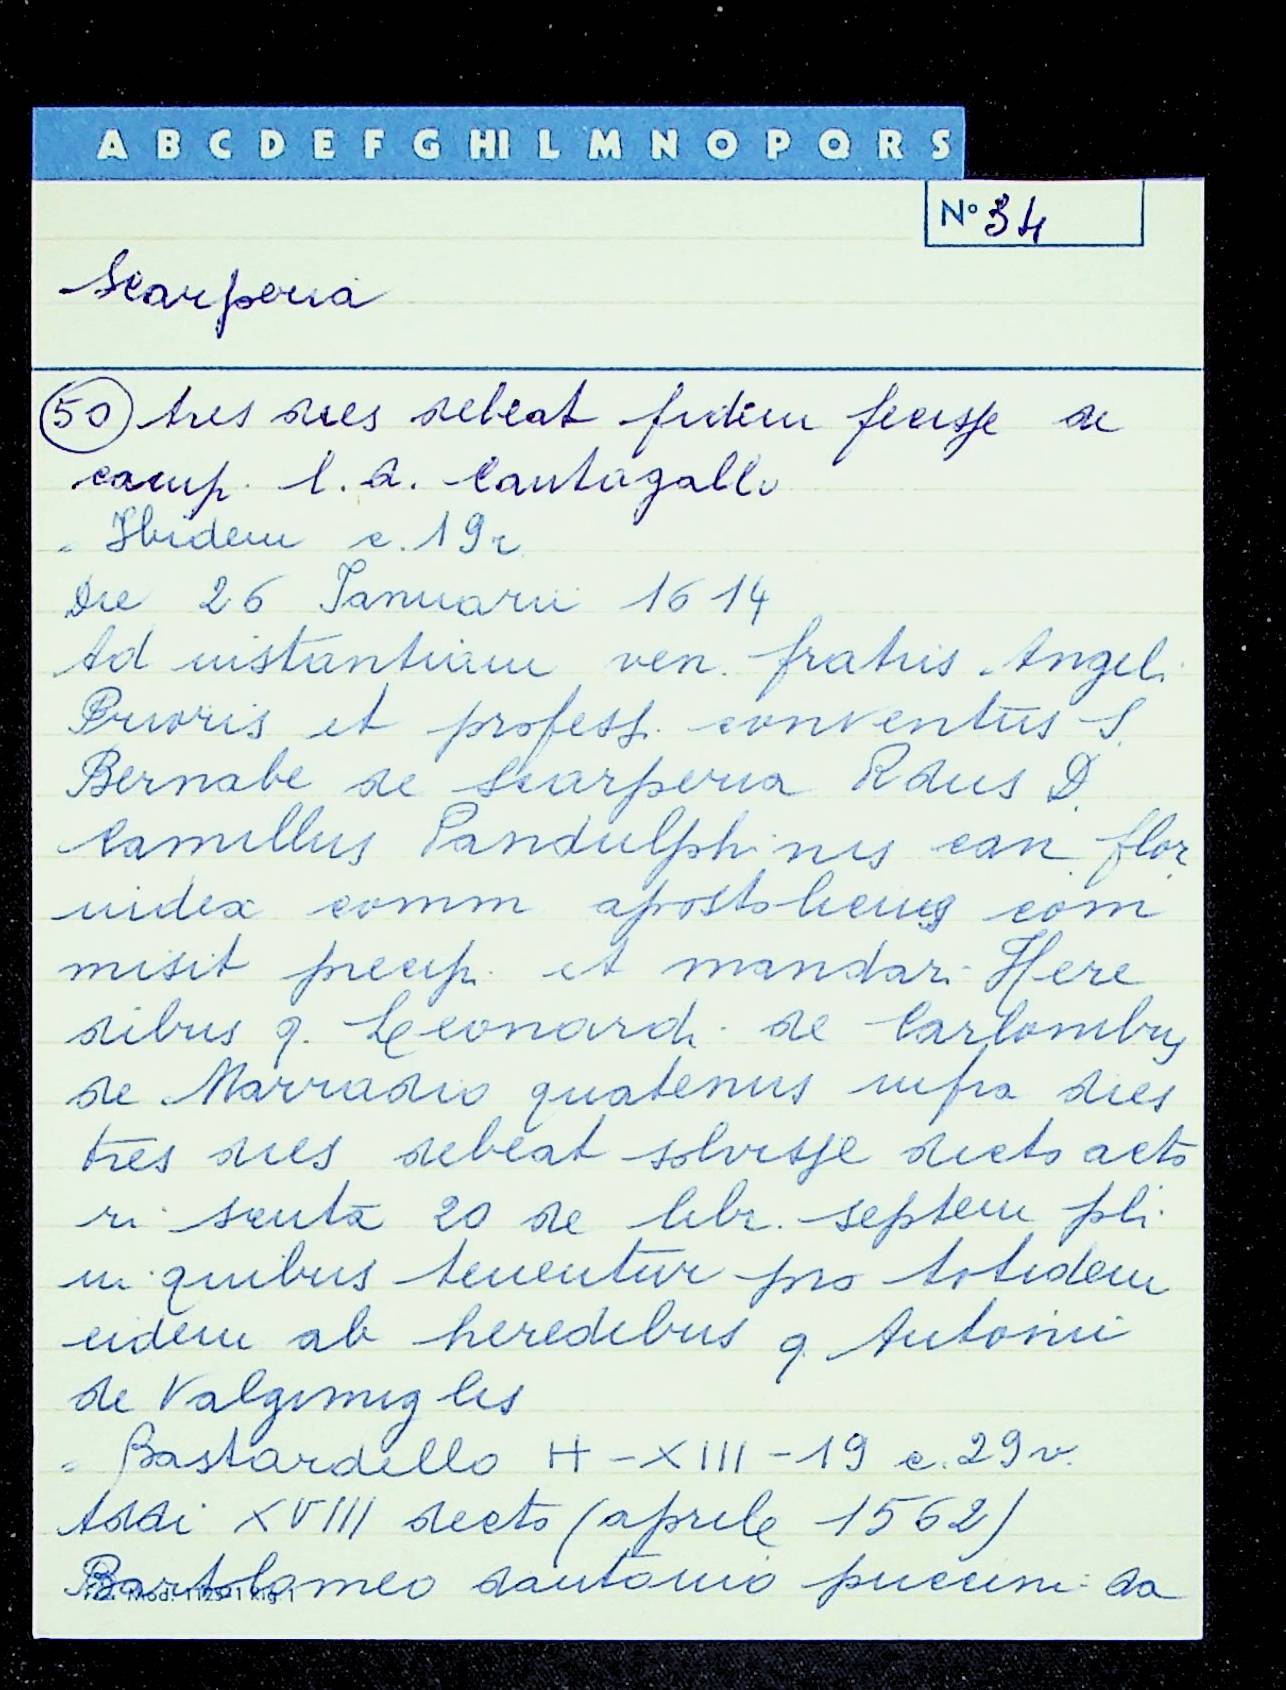 A B C D E F G HI L M N O P Q R S
N° 34
Scarperia
50 tres dies debeat fidem fecisse de
camp. l. d. Cantagallo
- Ibidem c. 19r
Die 26 Ianuarii 1614
Ad instantiam ven. fratris Angeli
Prioris et profess. conventus S.
Bernabe de Scarperia Rdus D.
Camillus Pandulphinus can. flor.
iudex comm apostolicus com
misit precip. et mandari Here
dibus q. Leonardi de Carlombus
de Marradio quatenus infra dies
tres dies debeat solvisse dicto acto
ri scuta 20 de libr. septem pli.
in quibus tenentur pro totidem
eidem ab heredibus q. Antonii
de Valgimiglis
- Bastardello H-XIII-19 c. 29v.
Addi XVIII decto (aprile 1562)
Bartolomeo dantonio puccini da
Mod. 1125-1 Rig. 1